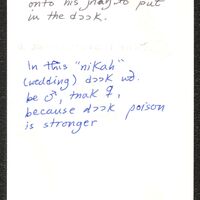 onto his to put
in the dɔɔk.
In this "nikah"
(wedding) dɔɔk wd.
be ♂, tnak ♀,
because dɔɔk poison
is stronger